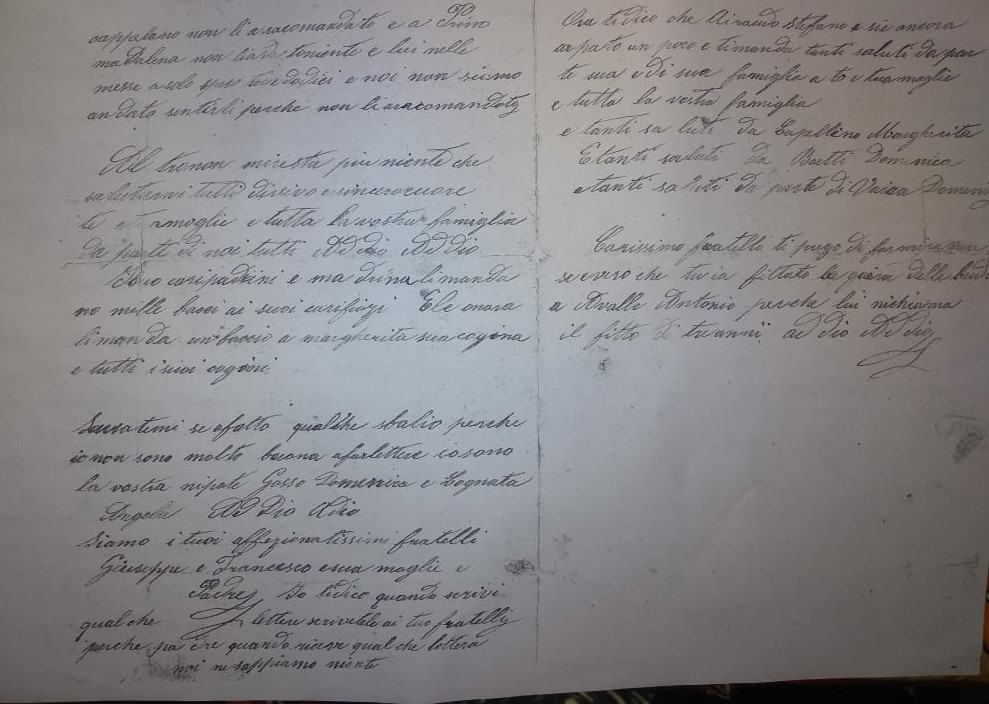 cappelano non li a racomandato e a Primo
madalena non lia da temiente e lui nelle
messe a solo spes tredadici e noi non siamo
andato sentirli perche non li a racomandato
Al tronon miresta piu niente che
salutarvi tutti divivo e sincerocuore
te amoglie e tutta la vostra famiglia
da parte di noi tutti Ad dio Ad dio
I suoi caripadrini e madrina limanda
no mille bacci ai suoi carifiozi Eleonora
limanda un baccio a margherita sua cogina
e tutti i suoi cogini
Scusatemi se o fatto qualche sbalio perche
io non sono molto buona a far lettere io sono
la vostra nipote Gosso Domenica e Cognata
Angela Ad Dio Adio
Siamo i tuoi affezionatissimi fratelli
Giuseppe e Francesco e sua moglie e
Padre Io tidico quando scrivi
qualche lettere scrivetele ai tuo fratelli
perche pa dre quando riceve qual che lettera
noi ne sappiamo niente
Ora tidico che Airaudo Stefano e sie ancora
un poco e timanda tanti saluti da par
te sua e di sua famiglia a te e tua moglie
e tutta la vostra famiglia
e tanti sa luti da Capellino Margherita
E tanti saluti da Boetti Domenico
e tanti saluti da parte di Vaira
Carissimo fratello ti prego di farmi
se e vero che tu ia fittato la
a Avalle Antonio perche lui nichiama
il fitto di tre anni ad Dio Ad Dio